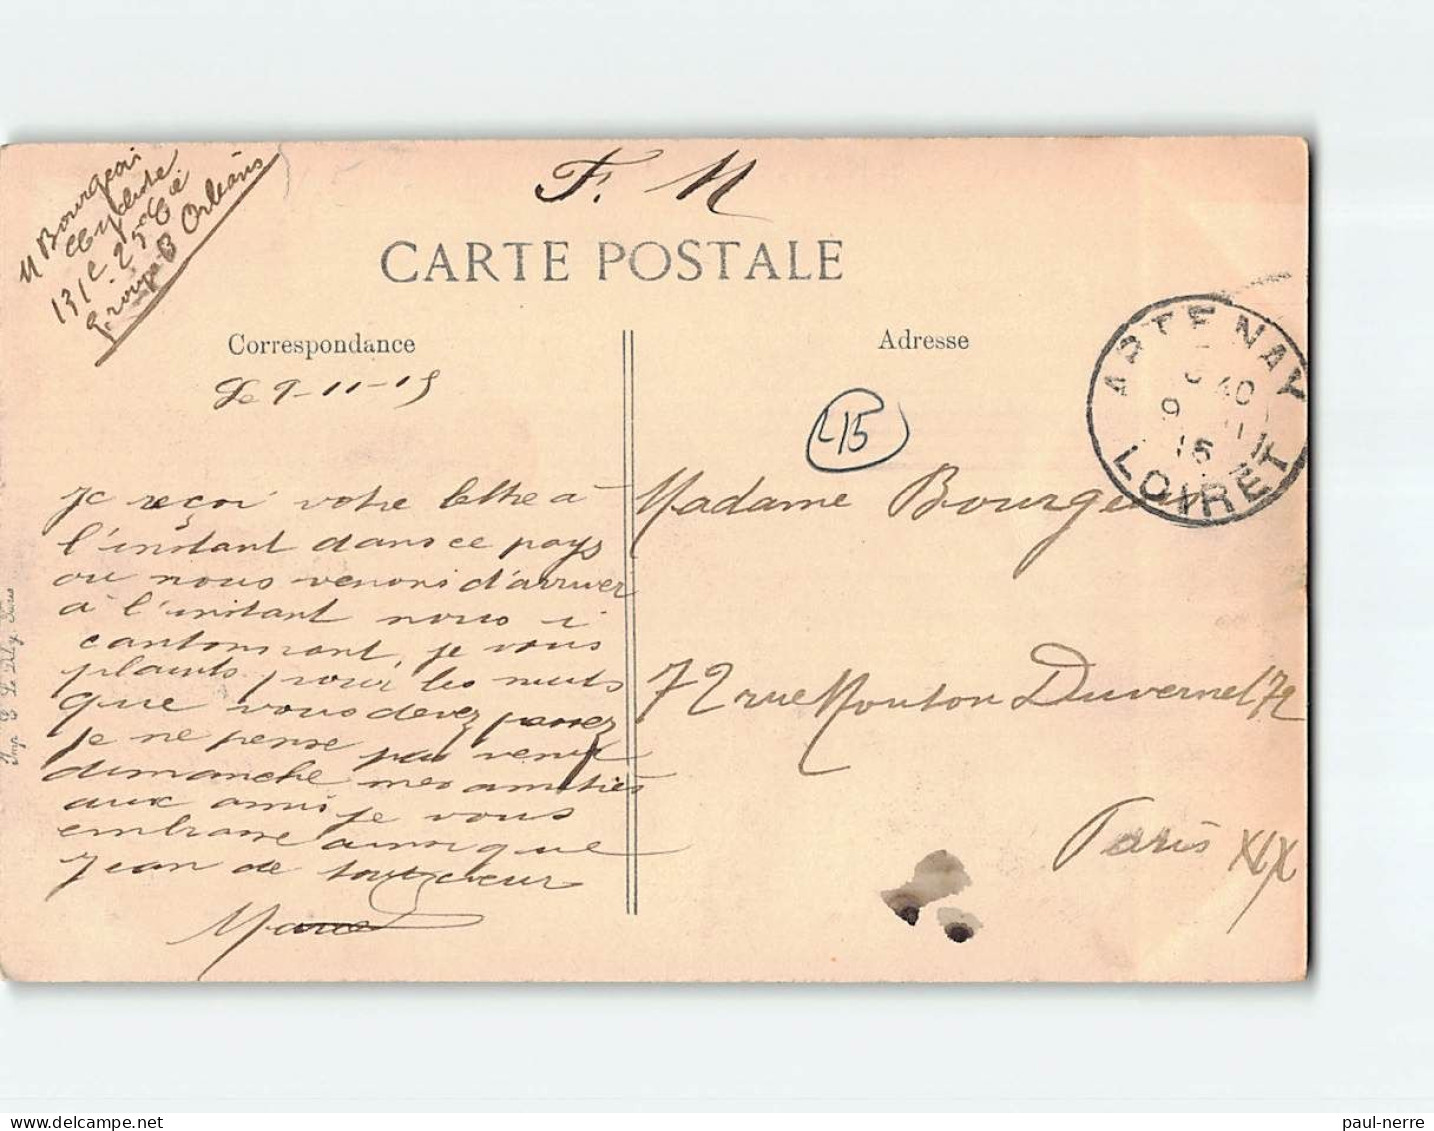 M Bourgeois
Cycliste
131e 25e Cie
Groupe B Orléans
F. M
CARTE POSTALE
Correspondance
Adresse
Le 9-11-15
15
ARTENAY
LOIRET
9 11
15
Je reçoi votre lettre à
l'instant dans ce pays
ou nous venons d'arriver
à l'instant nous i
cantonnant, je vous
plaints pour les nuits
que vous devez passez
je ne pense pas venir
dimanche mes amitiés
aux amis je vous
embrasse ainsi que
Jean de tout cœur
Marcel
Madame Bourgeois
72 rue Mouton Duvernet 72
Paris XIX
Imp. E. Le Deley, Paris
paul-nerre